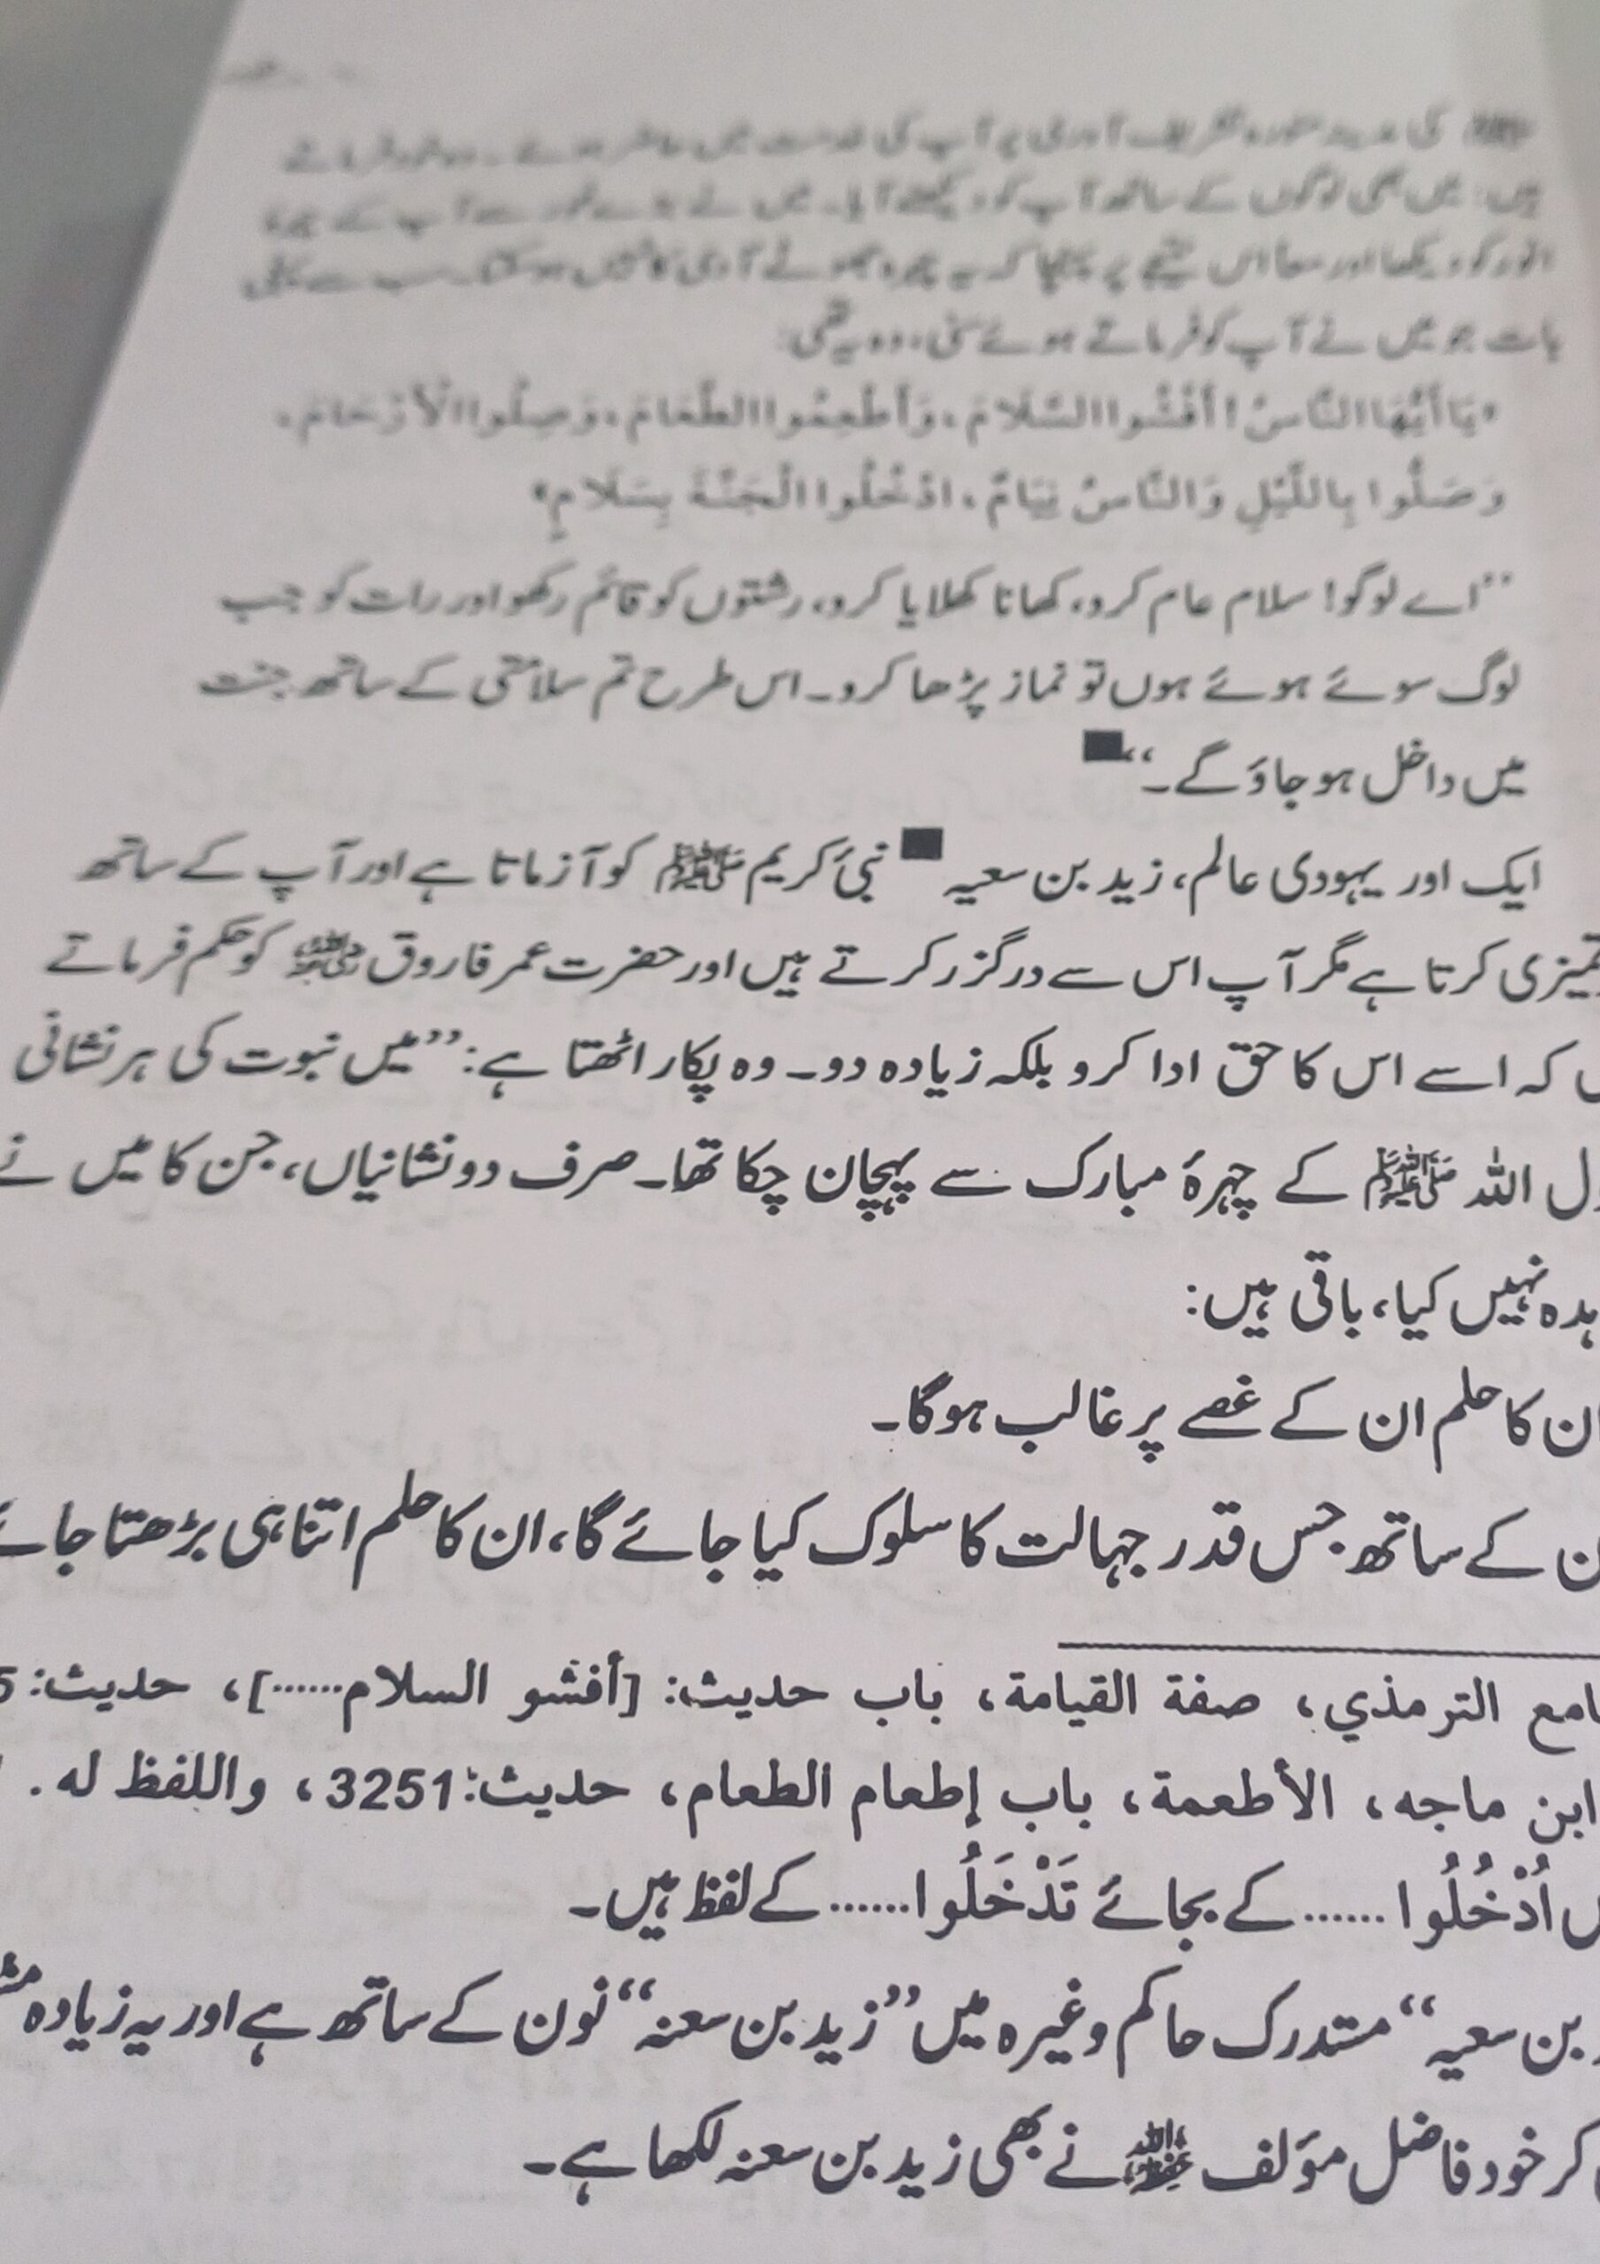 کی مدینہ منورہ تشریف آوری پر آپ کی خدمت میں حاضر ہوئے۔ وہ خود فرماتے
ہیں: میں بھی لوگوں کے ساتھ آپ کو دیکھنے آیا۔ میں نے بڑے غور سے آپ کے چہرۂ
انور کو دیکھا اور معاً اس نتیجے پر پہنچا کہ یہ چہرہ جھوٹے آدمی کا نہیں ہو سکتا۔ سب سے پہلی
بات جو میں نے آپ کو فرماتے ہوئے سنی، وہ یہ تھی:
«يَا أَيُّهَا النَّاسُ! أَفْشُوا السَّلَامَ، وَأَطْعِمُوا الطَّعَامَ، وَصِلُوا الْأَرْحَامَ،
وَصَلُّوا بِاللَّيْلِ وَالنَّاسُ نِيَامٌ، ادْخُلُوا الْجَنَّةَ بِسَلَامٍ»
’’اے لوگو! سلام عام کرو، کھانا کھلایا کرو، رشتوں کو قائم رکھو اور رات کو جب
لوگ سوئے ہوئے ہوں تو نماز پڑھا کرو۔ اس طرح تم سلامتی کے ساتھ جنت
میں داخل ہو جاؤ گے۔‘‘
ایک اور یہودی عالم، زید بن سعیہ نبیٔ کریم ﷺ کو آزماتا ہے اور آپ کے ساتھ
تمیزی کرتا ہے مگر آپ اس سے درگزر کرتے ہیں اور حضرت عمر فاروق رضی اللہ عنہ کو حکم فرماتے
کہ اسے اس کا حق ادا کرو بلکہ زیادہ دو۔ وہ پکار اٹھتا ہے: ’’میں نبوت کی ہر نشانی
ول اللہ ﷺ کے چہرۂ مبارک سے پہچان چکا تھا۔ صرف دو نشانیاں، جن کا میں نے
ہدہ نہیں کیا، باقی ہیں:
ان کا حلم ان کے غصے پر غالب ہوگا۔
ن کے ساتھ جس قدر جہالت کا سلوک کیا جائے گا، ان کا حلم اتنا ہی بڑھتا جائے
امع الترمذي، صفة القيامة، باب حديث: [أفشو السلام......]، حديث: 5
ابن ماجه، الأطعمة، باب إطعام الطعام، حديث: 3251، واللفظ له.
اُدْخُلُوا ...... کے بجائے تَدْخَلُوا...... کے لفظ ہیں۔
بن سعیہ‘‘ مستدرک حاکم وغیرہ میں ’’زید بن سعنہ‘‘ نون کے ساتھ ہے اور یہ زیادہ
کر خود فاضل مؤلف حفظہ اللہ نے بھی زید بن سعنہ لکھا ہے۔